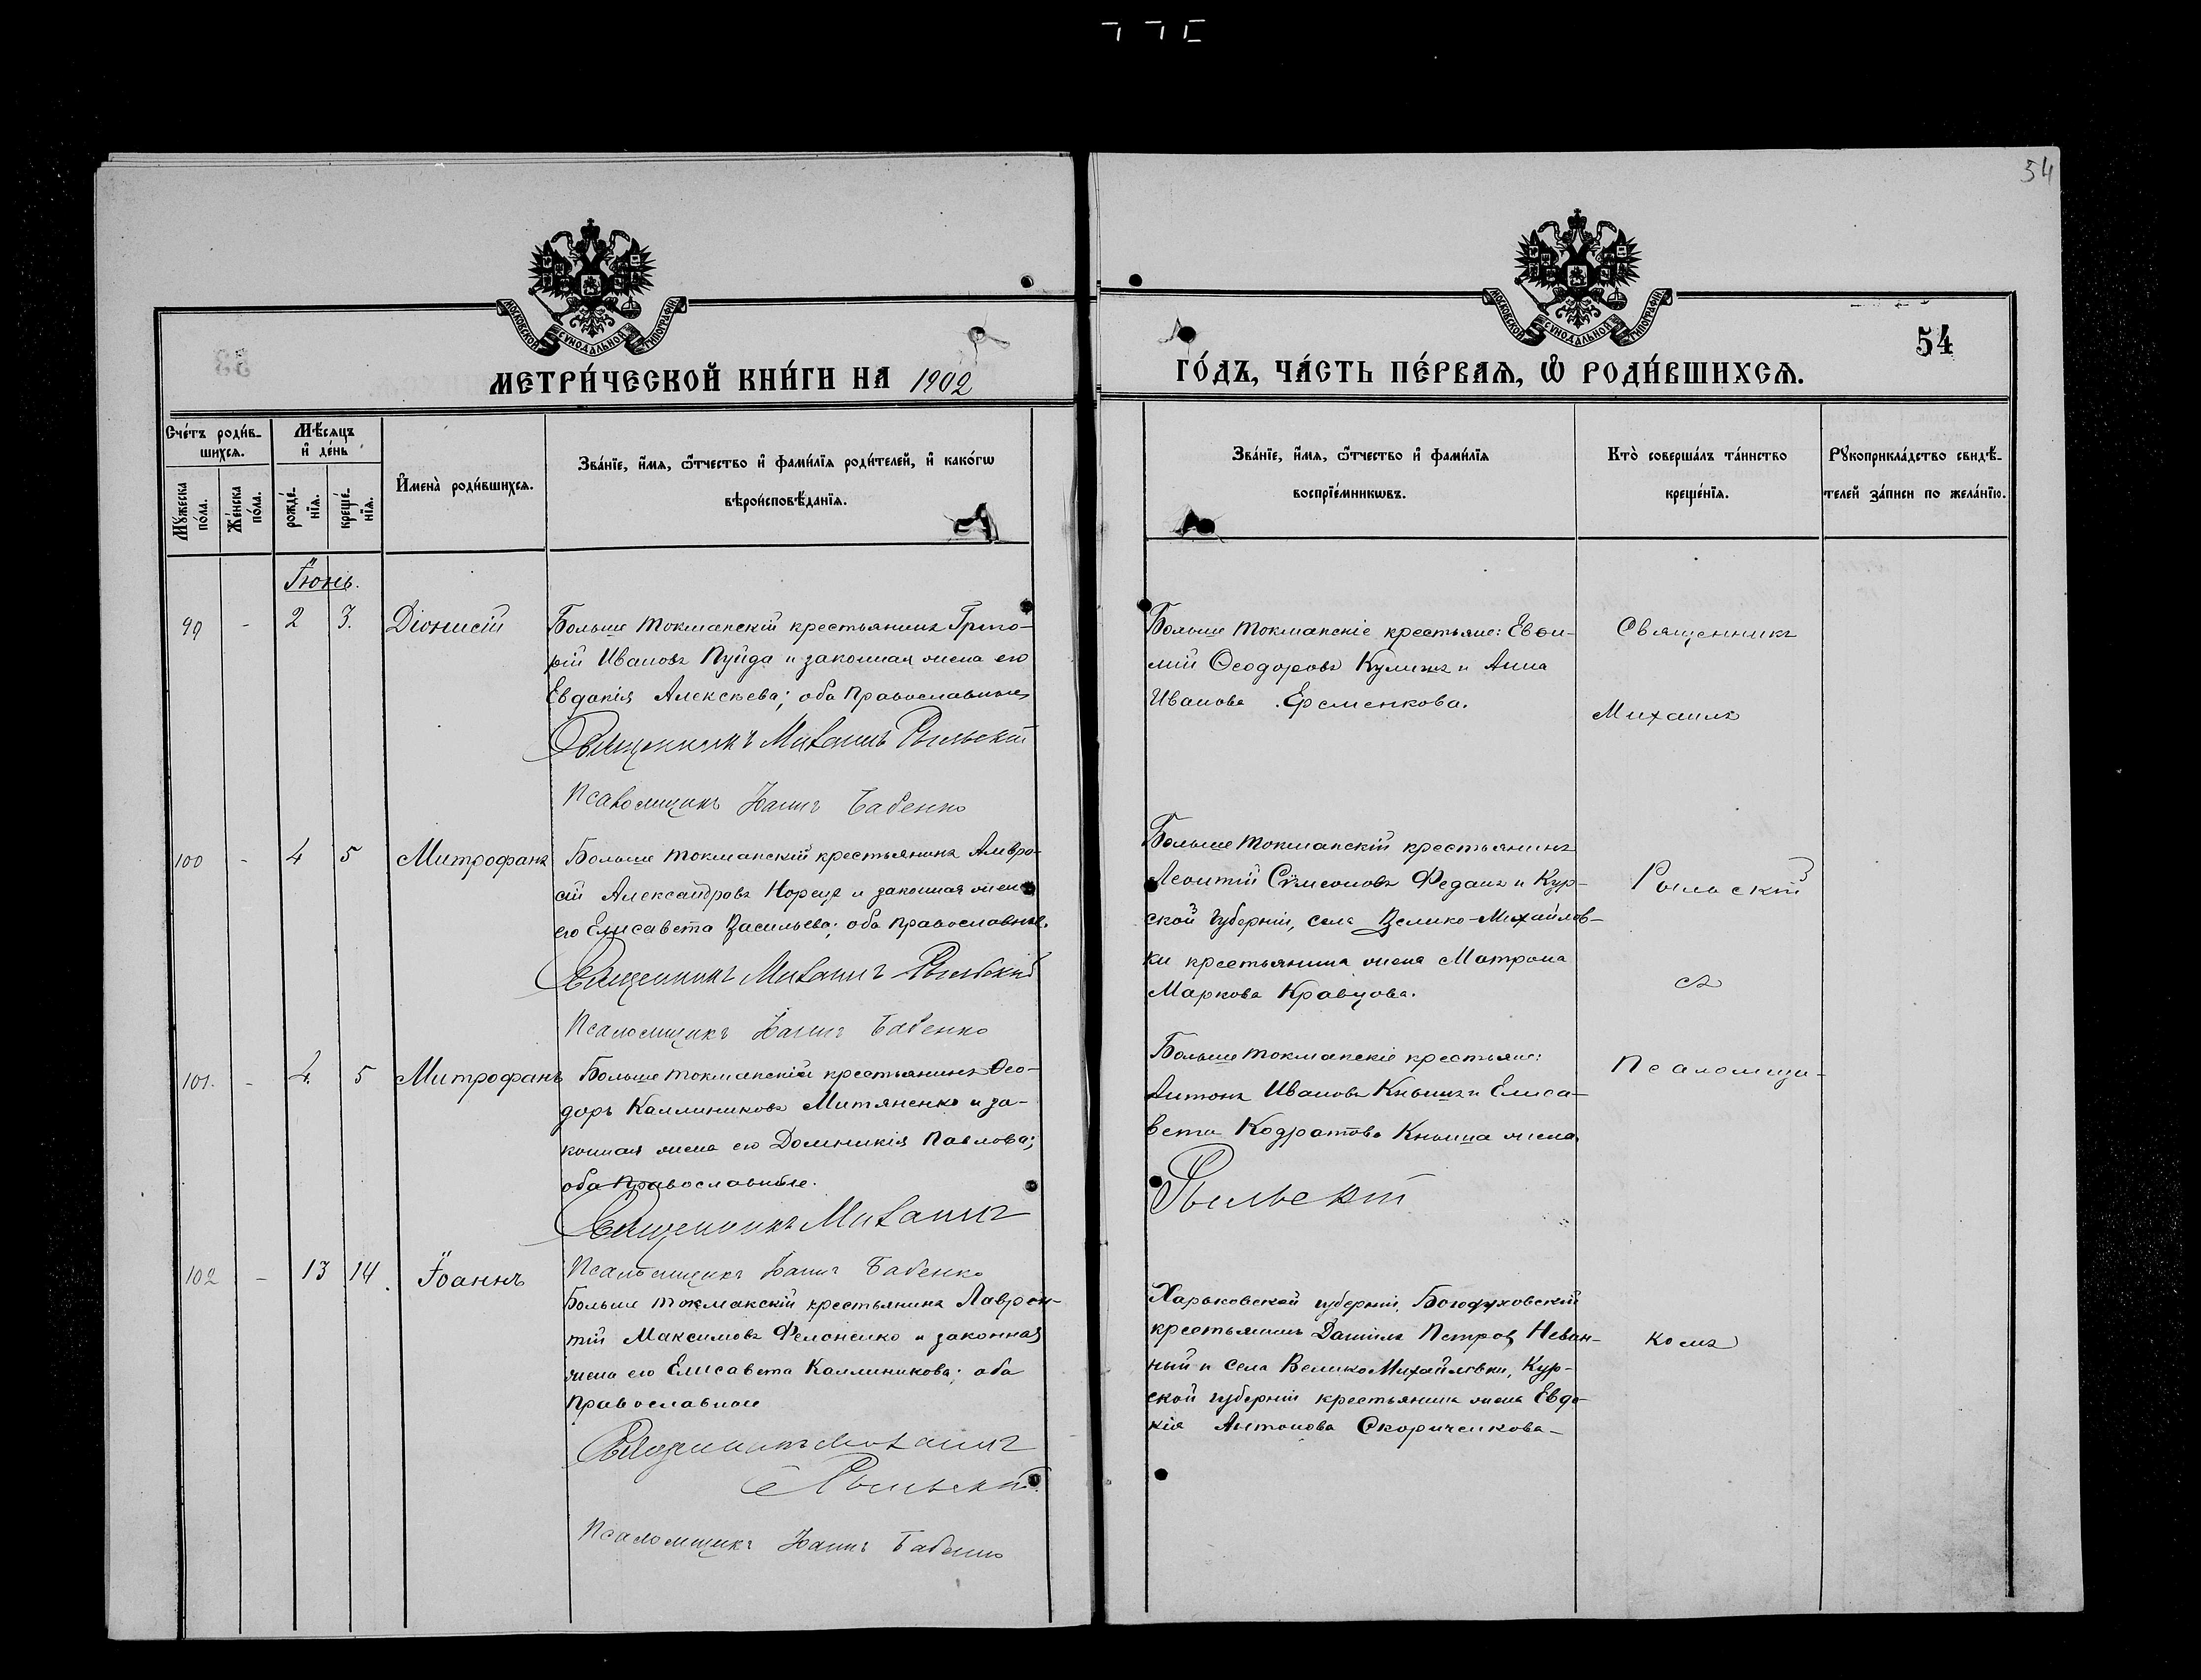 54
МОСКОВСКОЙ СѴНОДАЛЬНОЙ ТИПОГРАФІИ
МОСКОВСКОЙ СѴНОДАЛЬНОЙ ТИПОГРАФІИ
54
МЕТРИ́ЧЕСКОЙ КНИ́ГИ НА 1902
ГО́ДЪ, ЧА́СТЬ ПЕ́РВАѦ, Ѡ҆ РОДИ́ВШИХСѦ.
Сче́тъ роди́в-
шихсѧ.
Мѣ́сѧцъ
и҆ де́нь
Мꙋ́жеска
по́ла.
Же́нска
по́ла.
рожде́-
нїѧ.
креще́-
нїѧ.
И҆мена̀ роди́вшихсѧ.
Зва́нїе, и҆́мѧ, ѻ҆́тчество и҆ фами́лїѧ роди́телей, и҆ како́гѡ
вѣроисповѣ́данїѧ.
Зва́нїе, и҆́мѧ, ѻ҆́тчество и҆ фами́лїѧ
воспрїе́мникѡвъ.
Кто̀ соверша́лъ та́инство
креще́нїѧ.
Рꙋкоприкла́дство свидѣ́-
телей за́писи по жела́нїю.
Іюнь.
99 - 2 3. Діонисій
Больше Токмакскій крестьянинъ Григо-
рій Ивановъ Пуйда и законная жена его
Евдокія Алексѣева; оба православные
Священникъ Михаилъ Рыльскій
Псаломщикъ Іоаннъ Бабенко
Больше Токмакскіе крестьяне: Евѳи-
мій Ѳеодоровъ Кулишъ и Анна
Иванова Еременкова.
Священникъ
Михаилъ
100 - 4 5 Митрофанъ
Больше Токмакскій крестьянинъ Амвро-
сій Александровъ Нореця и законная жена
его Елисавета Васильева; оба православные.
Священникъ Михаилъ Рыльскій
Псаломщикъ Іоаннъ Бабенко
Больше Токмакскій крестьянинъ
Леонтій Сѵмеоновъ Федашъ и Кур-
ской губерніи, села Велико-Михайлов-
ки крестьянина жена Матрона
Маркова Кравцова.
Рыльскій
съ
101. - 4. 5 Митрофанъ
Больше Токмакскій крестьянинъ Ѳео-
доръ Каллиниковъ Митяненко и за-
конная жена его Домникія Павлова;
оба православные.
Священникъ Михаилъ
Больше Токмакскіе крестьяне:
Антонъ Ивановъ Кнышъ и Елиса-
вета Кодратова Кныша жена
Рыльскій
Псаломщи-
102 - 13 14. Іоаннъ
Псаломщикъ Іоаннъ Бабенко
Больше Токмакскій крестьянинъ Лаврен-
тій Максимовъ Фелоненко и законная
жена его Елисавета Каллиникова; оба
православные
Священникъ Михаилъ
Рыльскій
Псаломщикъ Іоаннъ Бабенко
Харьковской губерніи, Богодуховскій
крестьянинъ Даніилъ Петровъ Неван-
ный и села Велико Михайловки, Кур-
ской губерніи крестьянина жена Евдо-
кія Антонова Скориченкова-
комъ